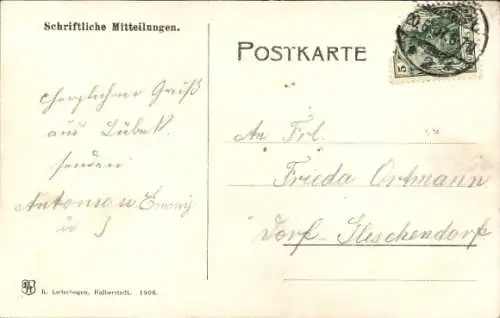 Schriftliche Mitteilungen.
POSTKARTE
5
herzlichen Gruß
aus Lübeck
senden
Antonie u Emmy
u
An Frl.
Frieda Ortmann
Dorf-Gleschendorf
R. Lederbogen, Halberstadt. 1906.